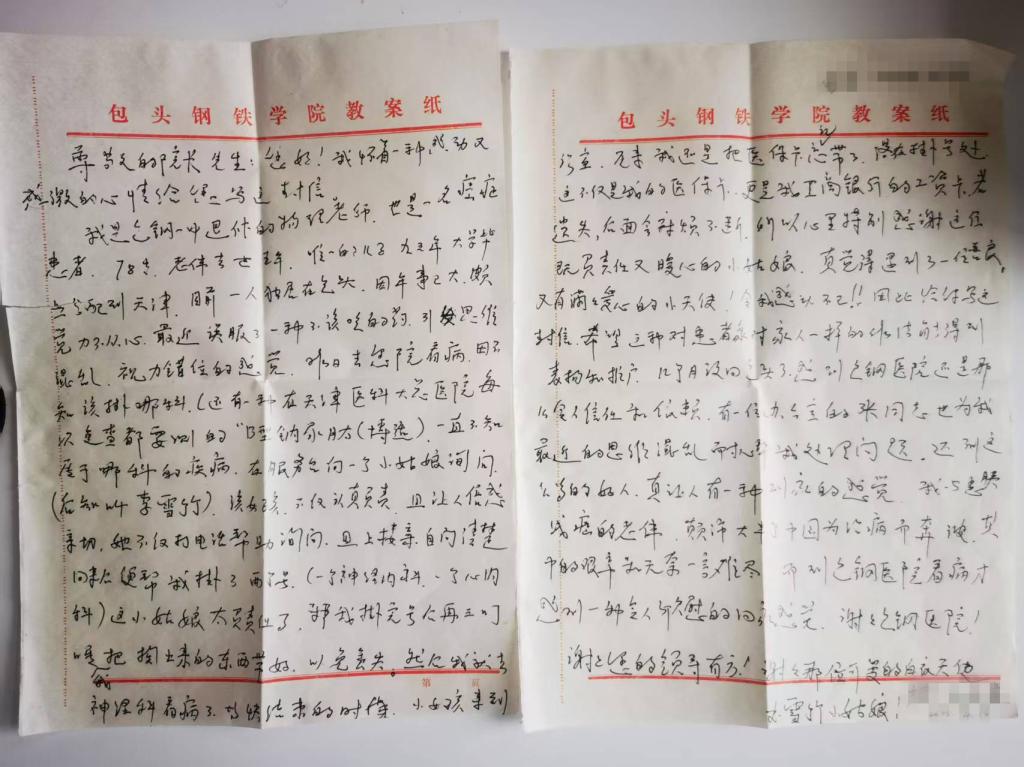 包头钢铁学院教案纸
尊敬的院长先生：您好！我怀着一种感动又
感激的心情给您写这封信
我是包钢一中退休的物理老师，也是一名癌症
患者，78岁，老伴去世，唯一的儿子九三年大学毕
业分配到天津，目前一人独居在包头，因年事已大，颇
觉力不从心，最近误服了一种不该吃的药，引发思维
混乱，视力错位的感觉，昨日去您院看病，因不
知该挂哪科，(还有一种在天津医科大总医院每
次复查都要测的"B型钠尿肽(博适)，一直不知
属于哪科的疾病，在服务台向一个小姑娘询问，
(后知叫李雪竹)，该女孩，不仅认真负责，且让人倍感
亲切，她不仅打电话帮助询问，且上楼亲自问清楚
回来后便帮我挂了两个号，(一个神经内科，一个心内
科)这小姑娘太负责任了，帮我挂完号后再三叮
嘱把掏出来的东西带好，以免丢失。然后我就去
第 页
神经科看病了，当快结束的时候，小女孩来到
包头钢铁学院教案纸
诊室，原来我还是把医保卡忘带了，落在挂号处
这不仅是我的医保卡，更是我工商银行的工资卡，若
遗失，后面会麻烦不断，所以心里特别感谢这位
既负责任又暖心的小姑娘，真觉得遇到了一位
又有满满爱心的小天使！令我感动不已!!因此给你写这
封信，希望这种对患者象对家人一样的作法能得到
表扬和推广，几个月没回包头了，感到包钢医院还是那
么令人信任和依赖，有一位办公室的张同志也为我
最近的思维混乱而耐心帮我处理问题，遇到这
么多的好人，真让人有一种到家的感觉，我与患
癌的老伴，颠沛大半个中国为治病而奔波，其
中的艰辛和无奈一言难尽，而到包钢医院看病才
感到一种令人欣慰的回家感觉，谢谢包钢医院！
谢谢您的领导有方！谢谢那位可爱的白衣天使
李雪竹小姑娘！